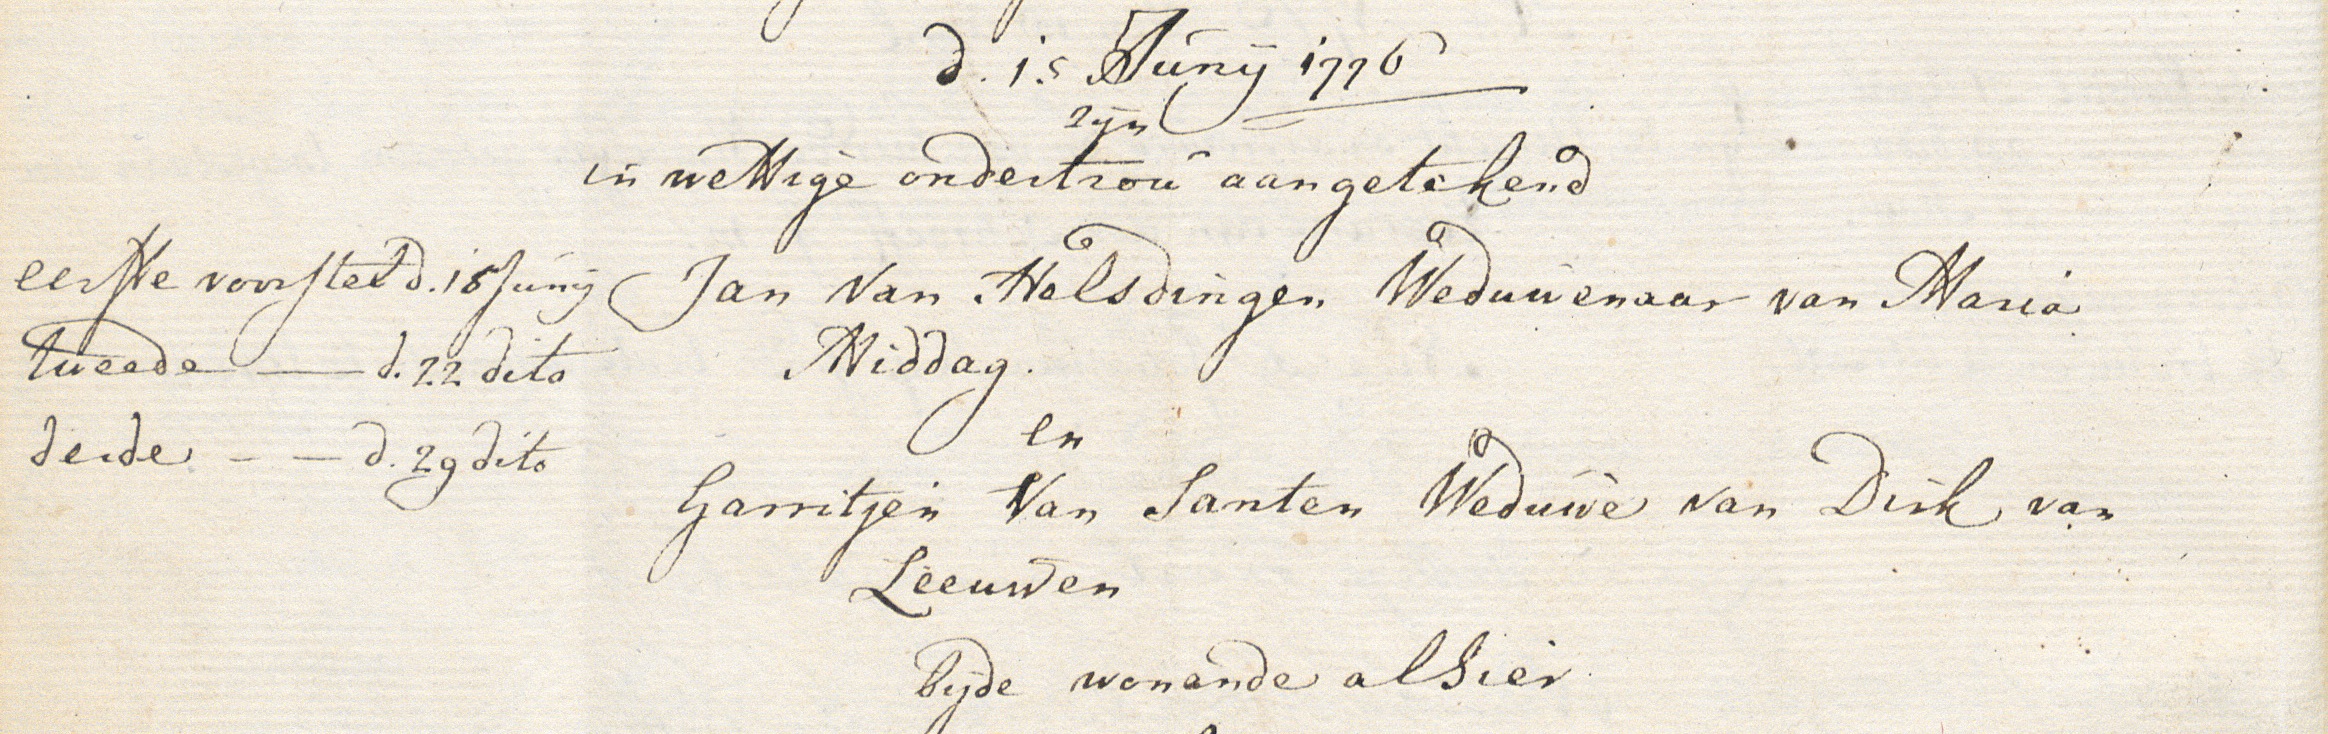 d. 15 Junij 1776
zijn
in wettige ondertrou aangetekend
eerste voorstel d. 15 Junij
tweede — d. 22 dito
derde - — d. 29 dito
Jan Van Helsdingen Weduwenaar van Maria
Middag.
en
Garritjen Van Santen Weduwe van Dirk van
Leeuwen
bijde wonende alhier